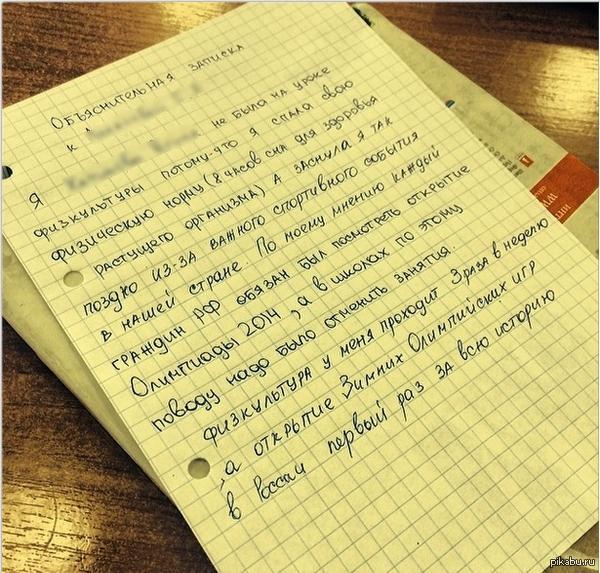 Объяснительная записка
к
Я не была на уроке
физкультуры потому-что я спала свою
физическую норму (8 часов сна для здоровья
растущего организма) А заснула я так
поздно из-за важного спортивного события
в нашей стране. По моему мнению каждый
граждин РФ обязан был посмотреть открытие
Олимпиады 2014, а в школах по этому
поводу надо было отменить занятия.
физкультура у меня проходит 3 раза в неделю
, а открытие Зимних Олимпийских игр
в России первый раз за всю историю
pikabu.ru